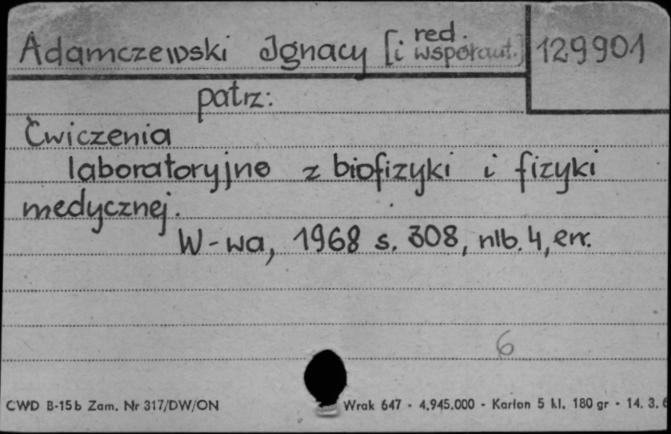 Adamczewski Ignacy [i red. współaut.] 129901
patrz:
Ćwiczenia
laboratoryjne z biofizyki i fizyki
medycznej.
W-wa, 1968 s. 308, nlb. 4, err.
6
CWD B-15b Zam. Nr 317/DW/ON Wrak 647 - 4.945.000 - Karton 5 kl. 180 gr - 14. 3. 6